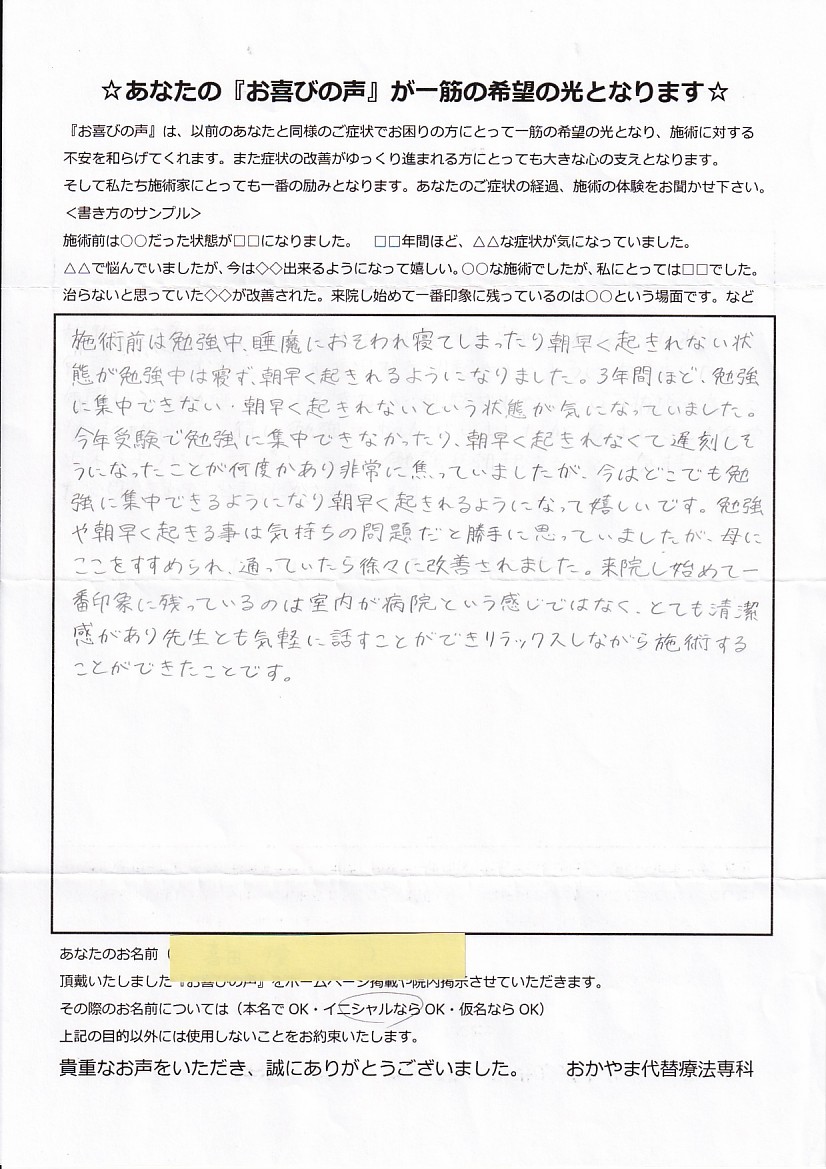 ☆あなたの『お喜びの声』が一筋の希望の光となります☆
『お喜びの声』は、以前のあなたと同様のご症状でお困りの方にとって一筋の希望の光となり、施術に対する
不安を和らげてくれます。また症状の改善がゆっくり進まれる方にとっても大きな心の支えとなります。
そして私たち施術家にとっても一番の励みとなります。あなたのご症状の経過、施術の体験をお聞かせ下さい。
＜書き方のサンプル＞
施術前は○○だった状態が□□になりました。　□□年間ほど、△△な症状が気になっていました。
△△で悩んでいましたが、今は◇◇出来るようになって嬉しい。○○な施術でしたが、私にとっては□□でした。
治らないと思っていた◇◇が改善された。来院し始めて一番印象に残っているのは○○という場面です。など
施術前は勉強中、睡魔におそわれ寝てしまったり朝早く起きれない状
態が勉強中は寝ず、朝早く起きれるようになりました。3年間ほど、勉強
に集中できない・朝早く起きれないという状態が気になっていました。
今年受験で勉強に集中できなかったり、朝早く起きれなくて遅刻しそ
うになったことが何度かあり非常に焦っていましたが、今はどこでも勉
強に集中できるようになり朝早く起きれるようになって嬉しいです。勉強
や朝早く起きる事は気持ちの問題だと勝手に思っていましたが、母に
ここをすすめられ、通っていたら徐々に改善されました。来院し始めて一
番印象に残っているのは室内が病院という感じではなく、とても清潔
感があり先生とも気軽に話すことができリラックスしながら施術する
ことができたことです。
あなたのお名前（
頂戴いたしました『お喜びの声』をホームページ掲載や院内掲示させていただきます。
その際のお名前については（本名で OK・イニシャルなら OK・仮名なら OK）
上記の目的以外には使用しないことをお約束いたします。
貴重なお声をいただき、誠にありがとうございました。　おかやま代替療法専科